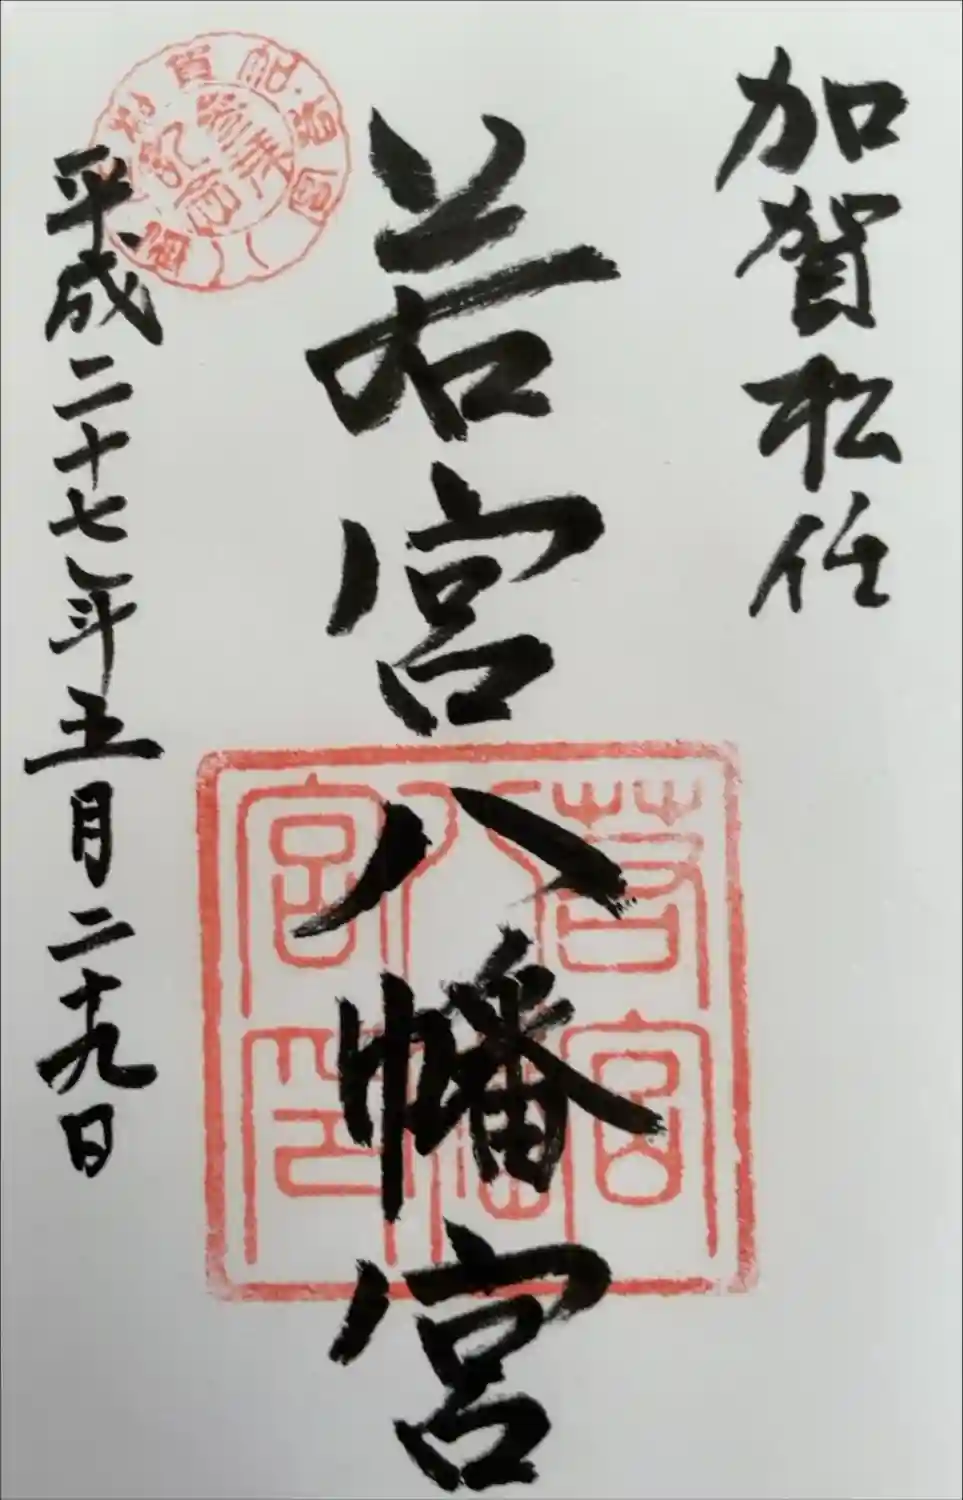 加賀松任
若宮八幡宮
平成二十七年五月二十九日
若宮
八幡
宮印